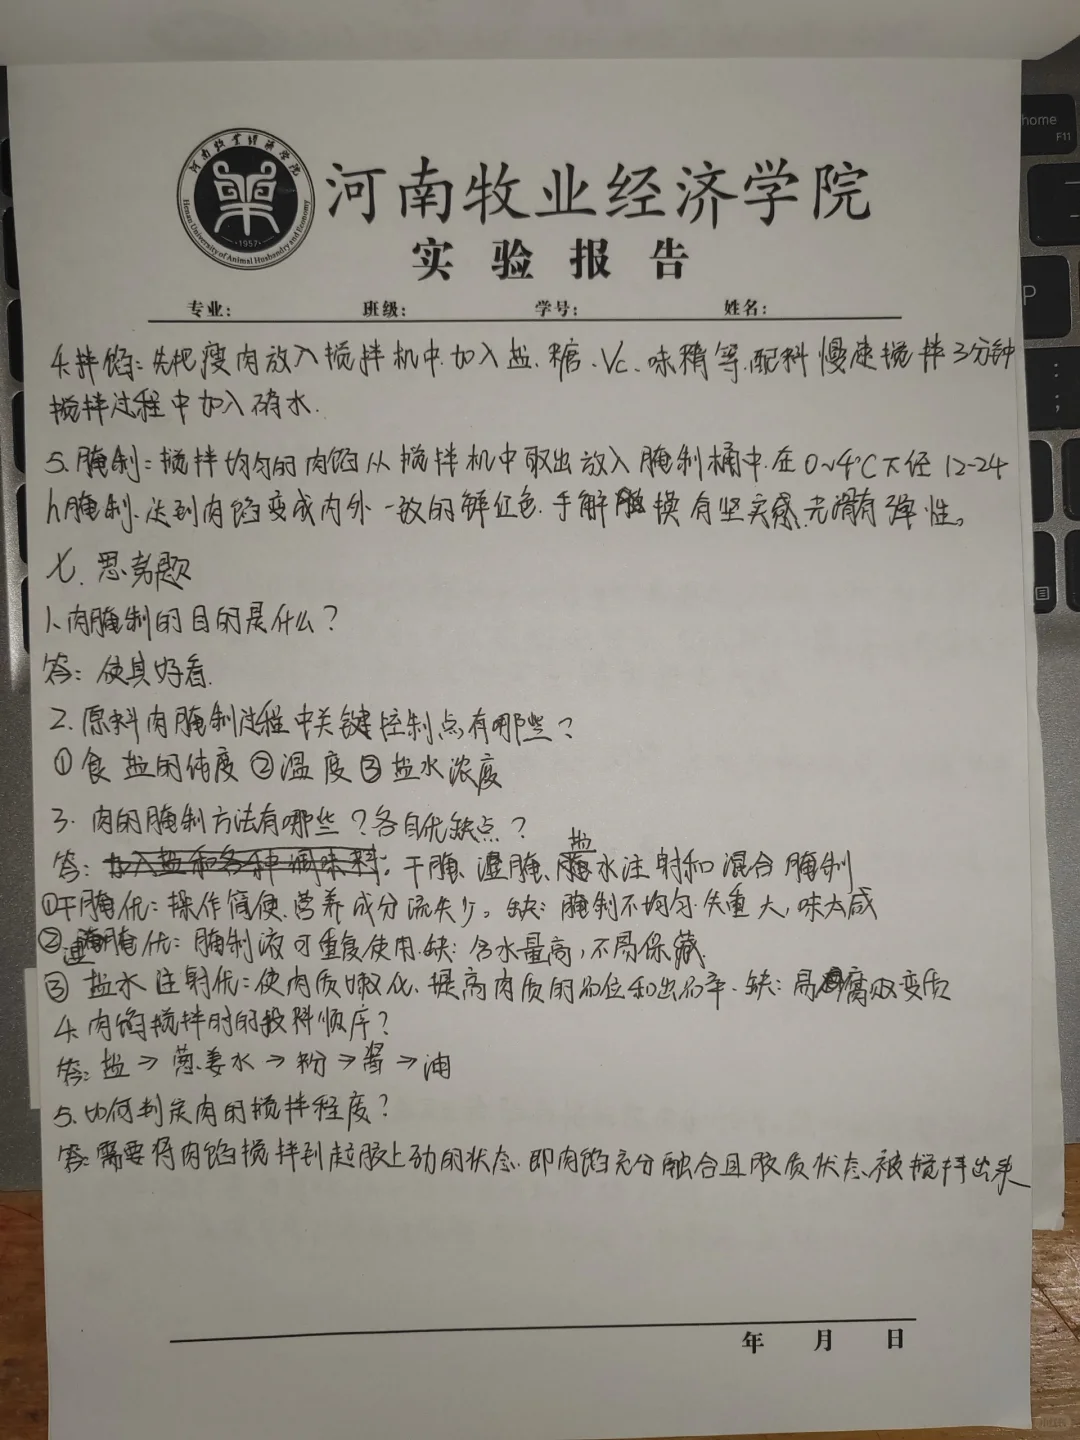 河南牧业经济学院
Henan University of Animal Husbandry and Economy
·1957·
河南牧业经济学院
实验报告
专业: 班级: 学号: 姓名:
4.拌馅:先把瘦肉放入搅拌机中.加入盐.糖.Vc.味精等.配料慢速搅拌3分钟
搅拌过程中加入碎水.
5.腌制:搅拌均匀的肉馅从搅拌机中取出放入腌制桶中.在0~4℃下经12-24
h腌制.达到肉馅变成内外一致的鲜红色.手解 摸有坚实感.光滑有弹性。
七.思考题
1、肉腌制的目的是什么?
答:使其好看.
2.原料肉腌制过程中关键控制点有哪些?
①食盐的纯度②温度③盐水浓度
3.肉的腌制方法有哪些?各自优缺点?
答:加入盐和各种调味料:干腌、湿腌、盐水注射和混合腌制
①干腌优:操作简便.营养成分流失少。缺:腌制不均匀.失重大,味太咸
②湿腌优:腌制液可重复使用.缺:含水量高,不易保藏
③盐水注射优:使肉质嫩化.提高肉质的品位和出品率.缺:易腐败变质
4.肉馅搅拌时的投料顺序?
答:盐→葱姜水→粉→酱→油
5.如何判定肉的搅拌程度?
答:需要将肉馅搅拌到起胶上劲的状态.即肉馅充分融合且胶质状态被搅拌出来
年 月 日
home
F11
P